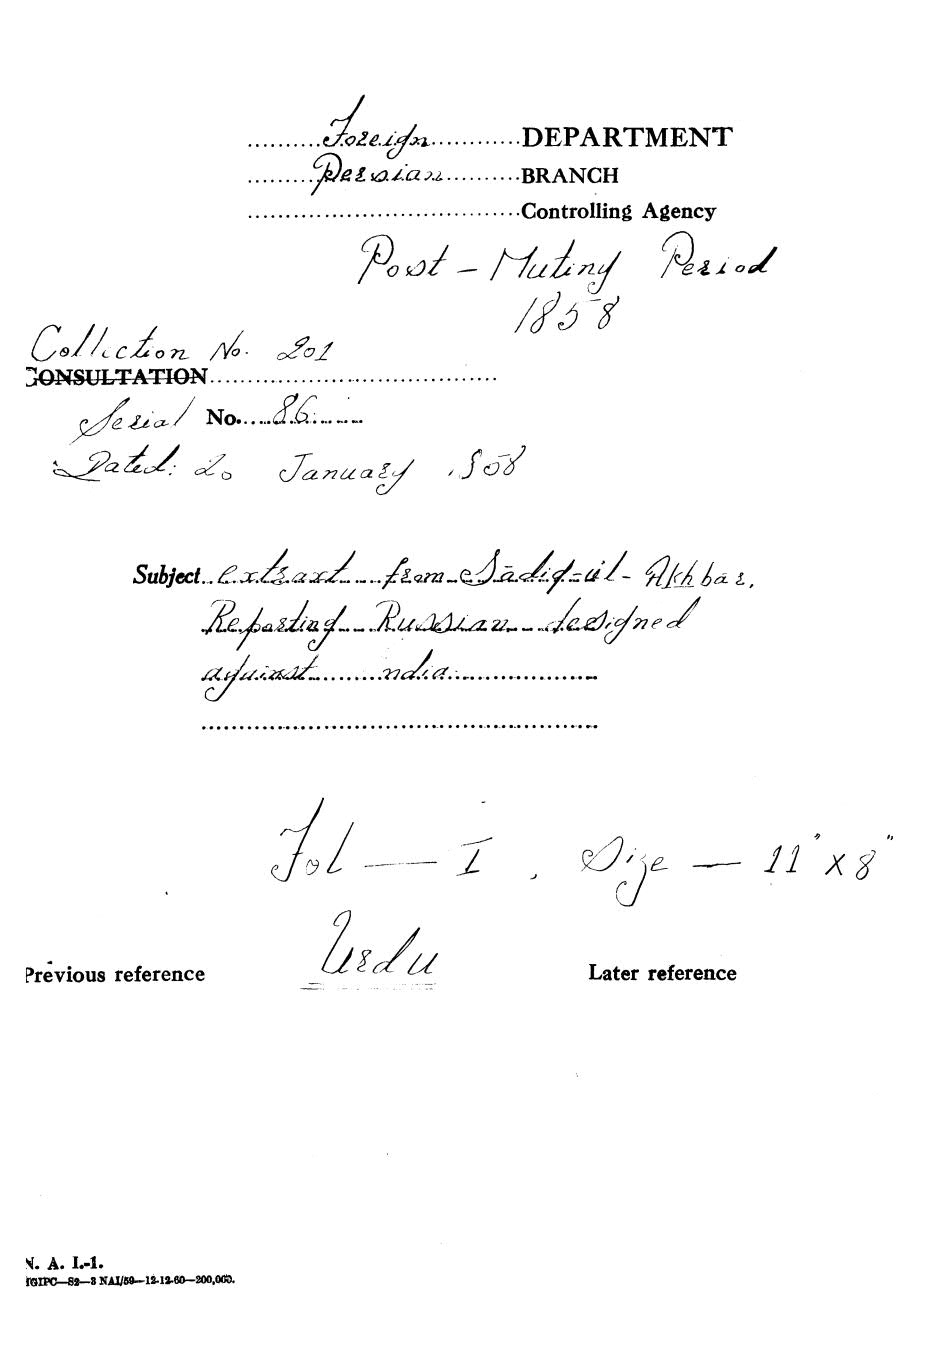 ..........Foreign............DEPARTMENT
.........Persian..........BRANCH
....................................Controlling Agency
Post - Mutiny Period
1858
Collection No. 201
CONSULTATION......................................
Serial No.....86......
Dated: 20 January 1858
Subject..extract....from Sadiq-ul-Akhbar,
Reporting Russian designed
against.........ndia...................
.....................................................
Fol — I, Size — 11" X 8"
Urdu
Previous reference Later reference
N. A. I.-1.
IGIPC—S2—3 NAI/59—12-12-60—200,000.